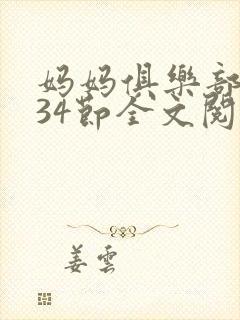 妈妈俱樂部
34節全文閱
姜雲